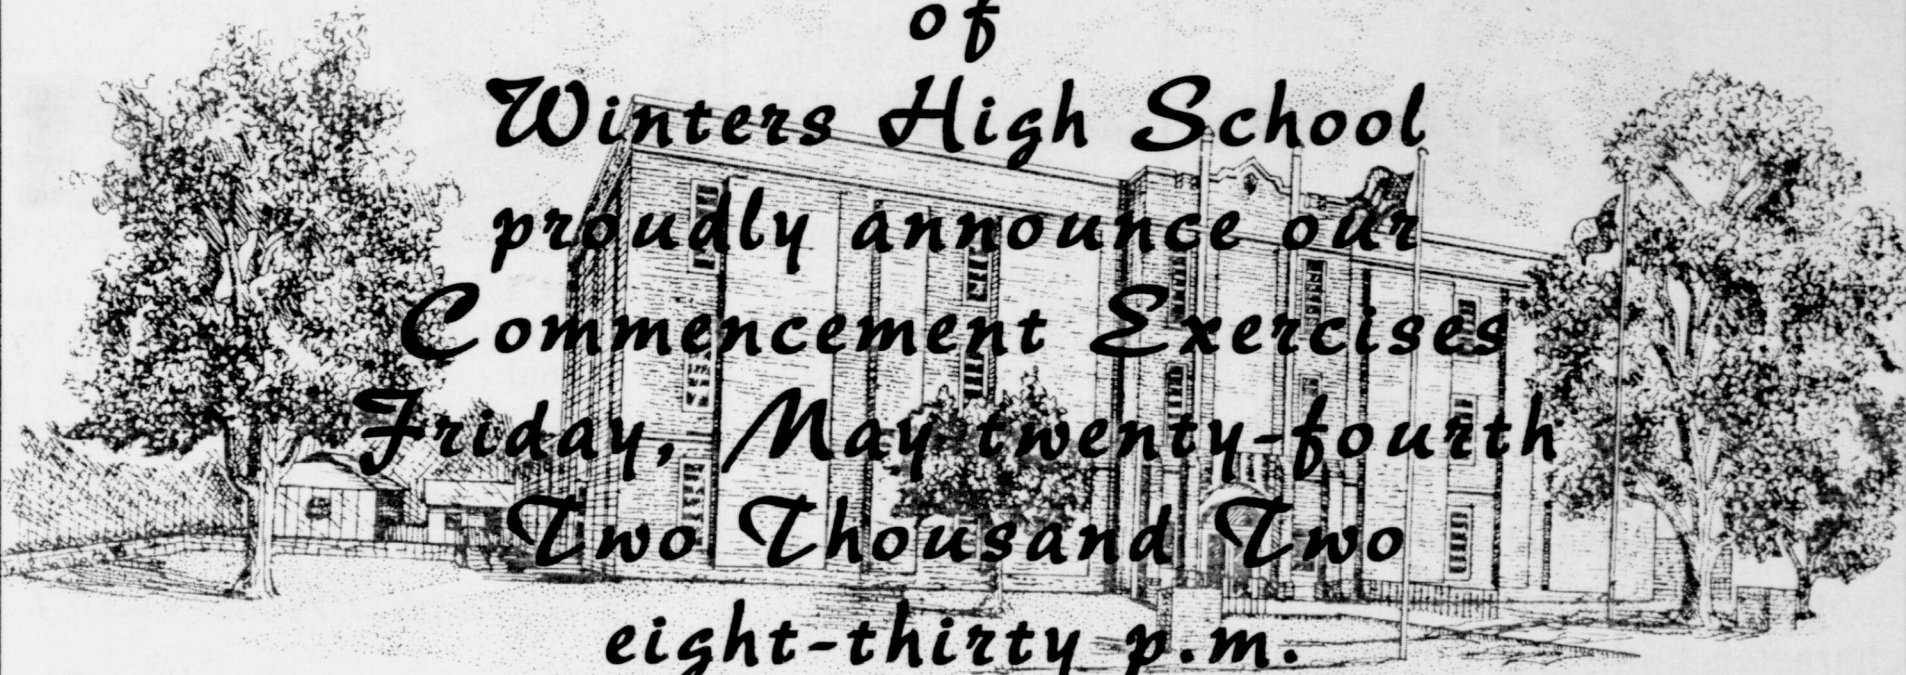 of
Winters High School
proudly announce our
Commencement Exercises
Friday, May twenty-fourth
Two Thousand Two
eight-thirty p.m.